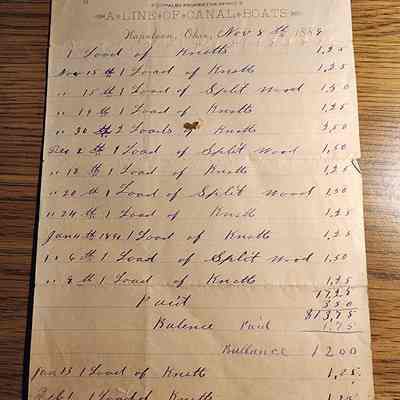 A LINE OF CANAL BOATS
Napoleon, Ohio, Nov 8 th 1889
1 Load of Knotts 1,25
Nov 15 th 1 Load of Knotts 1,25
" 15 th 1 Load of Split Wood 1,50
" 19 th 1 Load of Knotts 1,25
" 30 th 2 Loads of Knotts 2,50
Dec 2 th 1 Load of Split Wood 1,50
" 18 th 1 Load of Knotts 1,25
" 20 th 1 Load of Split Wood 1,50
" 24 th 1 Load of Knotts 1,25
Jan 4 th 1 Load of Knotts 1,25
" 6 th 1 Load of Split Wood 1,50
" 9 th 1 Load of Knotts 1,25
17,25
Paid 3,50
$13,75
Balence Paid 1,75
Bullance 12 00
Jan 13 1 Load of Knotts 1,25
1 Load of Knotts